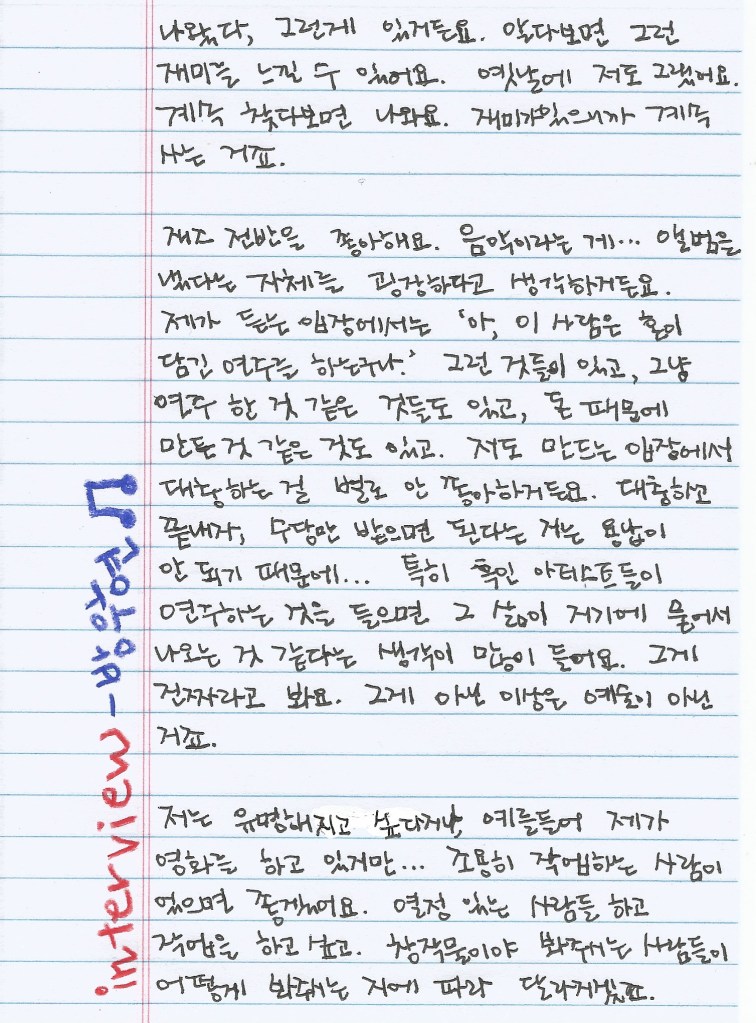 나왔다, 그런게 있거든요. 알다보면 그런
재미를 느낄 수 있어요. 옛날에 저도 그랬어요.
계속 찾다보면 나와요. 재미가있으니까 계속
사는 거죠.
재즈 전반을 좋아해요. 음악이라는 게... 앨범을
냈다는 자체를 굉장하다고 생각하거든요.
제가 듣는 입장에서는 '아, 이 사람은 혼이
담긴 연주를 하는구나.' 그런 것들이 있고, 그냥
연주 한 것 같은 것들도 있고, 돈 때문에
만든 것 같은 것도 있고. 저도 만드는 입장에서
대충하는 걸 별로 안 좋아하거든요. 대충하고
끝내자, 수당만 받으면 된다는 저는 용납이
안 되기 때문에... 특히 흑인 아티스트들이
연주하는 것을 들으면 그 삶이 저기에 묻어서
나오는 것 같다는 생각이 많이 들어요. 그게
진짜라고 봐요. 그게 아닌 이상은 예술이 아닌
거죠.
저는 유명해지고 싶다거나, 예를들어 제가
영화를 하고 있지만... 조용히 작업하는 사람이
었으면 좋겠어요. 열정 있는 사람들 하고
작업을 하고 싶고. 창작물이야 봐주시는 사람들이
어떻게 봐주시는 지에 따라 달라지겠죠.
interview - 방악현